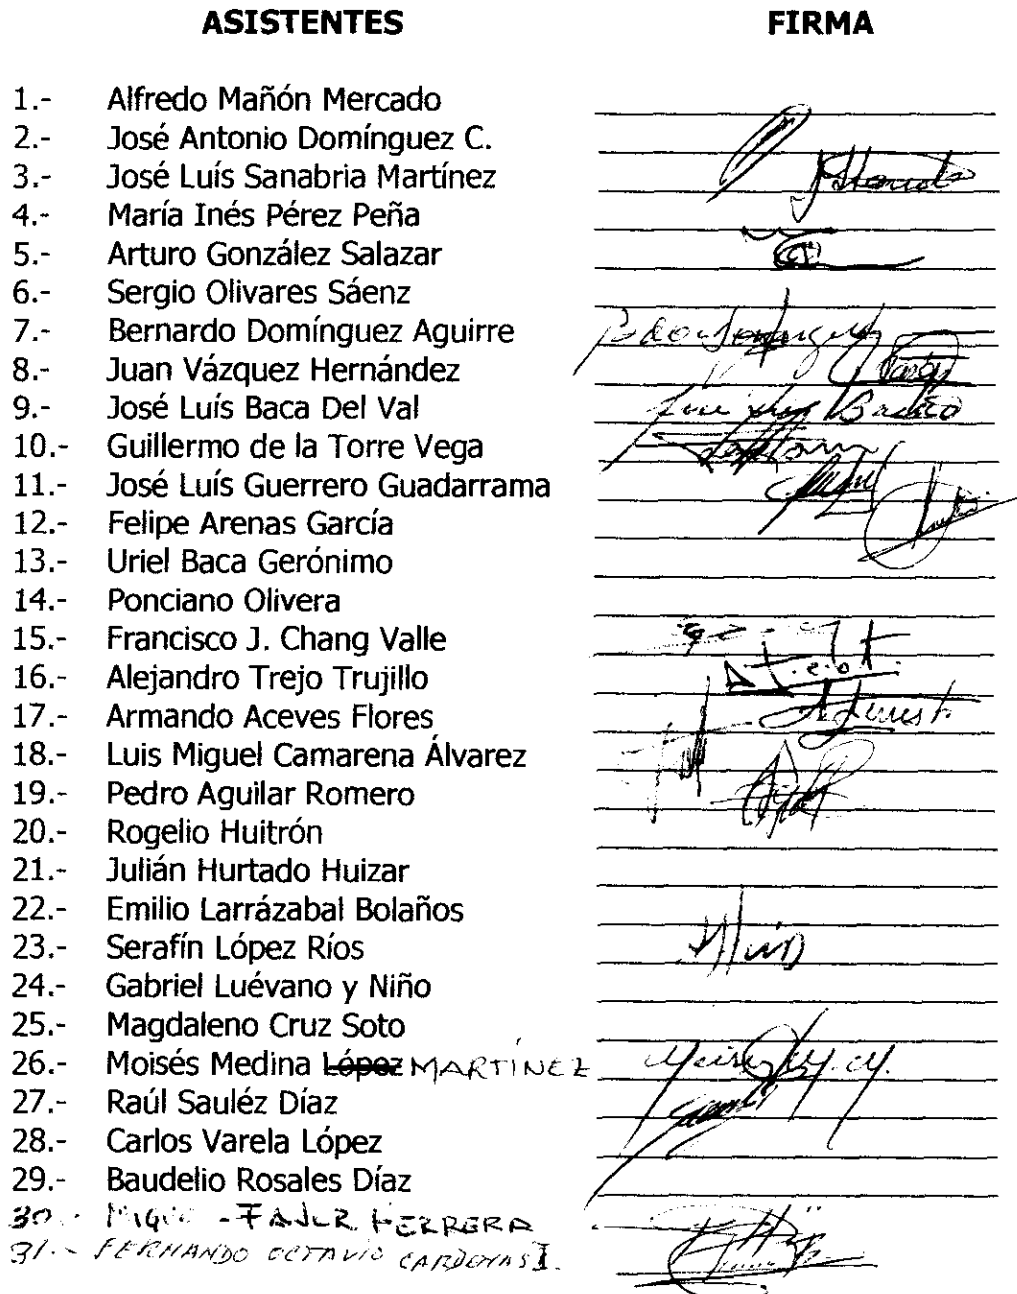 ASISTENTES FIRMA
1.- Alfredo Mañón Mercado
2.- José Antonio Domínguez C.
3.- José Luís Sanabria Martínez
4.- María Inés Pérez Peña
5.- Arturo González Salazar
6.- Sergio Olivares Sáenz
7.- Bernardo Domínguez Aguirre
8.- Juan Vázquez Hernández
9.- José Luís Baca Del Val
10.- Guillermo de la Torre Vega
11.- José Luís Guerrero Guadarrama
12.- Felipe Arenas García
13.- Uriel Baca Gerónimo
14.- Ponciano Olivera
15.- Francisco J. Chang Valle
16.- Alejandro Trejo Trujillo
17.- Armando Aceves Flores
18.- Luis Miguel Camarena Álvarez
19.- Pedro Aguilar Romero
20.- Rogelio Huitrón
21.- Julián Hurtado Huizar
22.- Emilio Larrázabal Bolaños
23.- Serafín López Ríos
24.- Gabriel Luévano y Niño
25.- Magdaleno Cruz Soto
26.- Moisés Medina López MARTÍNEZ
27.- Raúl Sauléz Díaz
28.- Carlos Varela López
29.- Baudelio Rosales Díaz
30.- HERRERA
31.- FERNANDO OCTAVIO CARDENAS I.